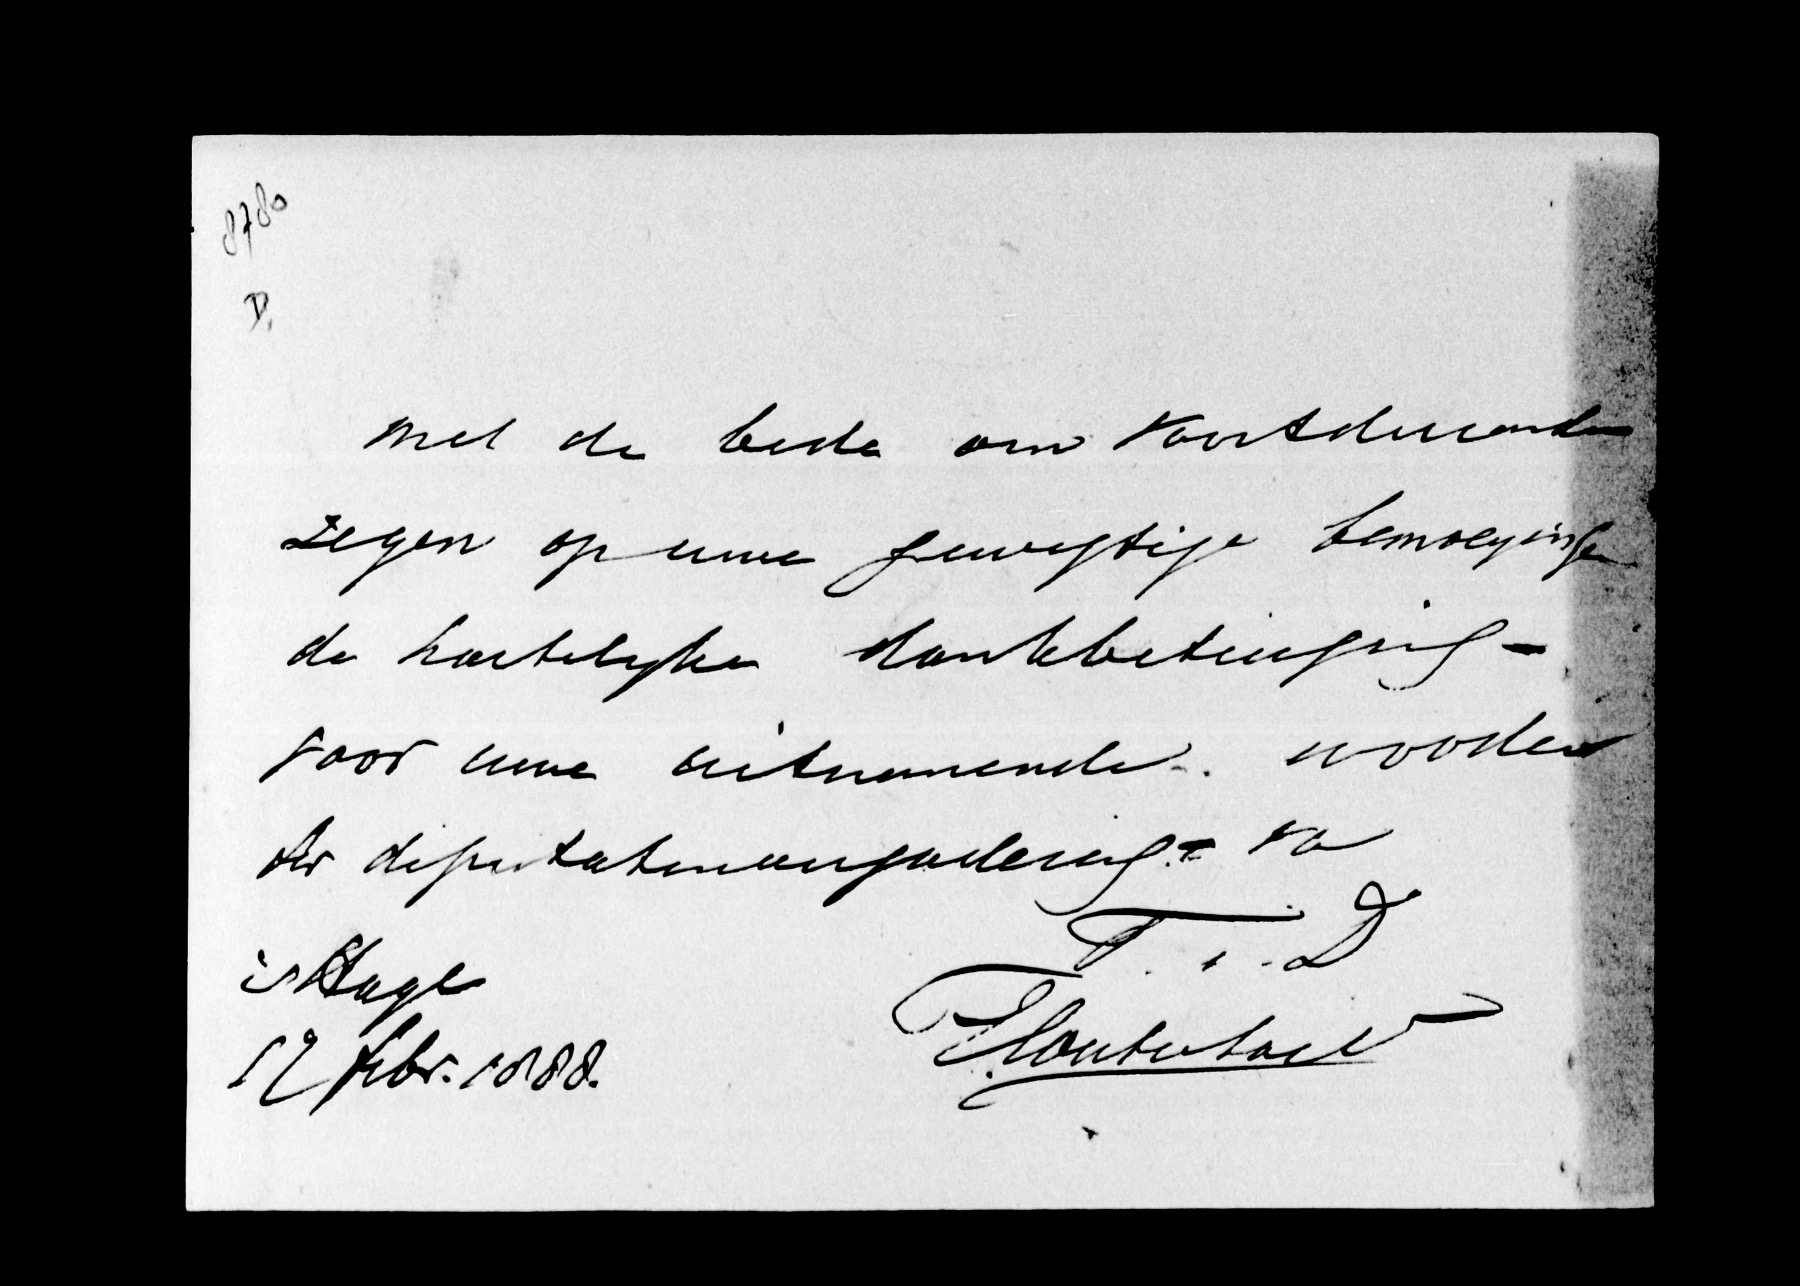 8780
D.
Met de bede om voortdurenden
zegen op uwe gewigtige bemoeyingen
de hartelyke dankbetuiging
voor uwe uitnemende woorden
der deputatenvergadering
T. t. D
's Hage
17 febr. 1888.